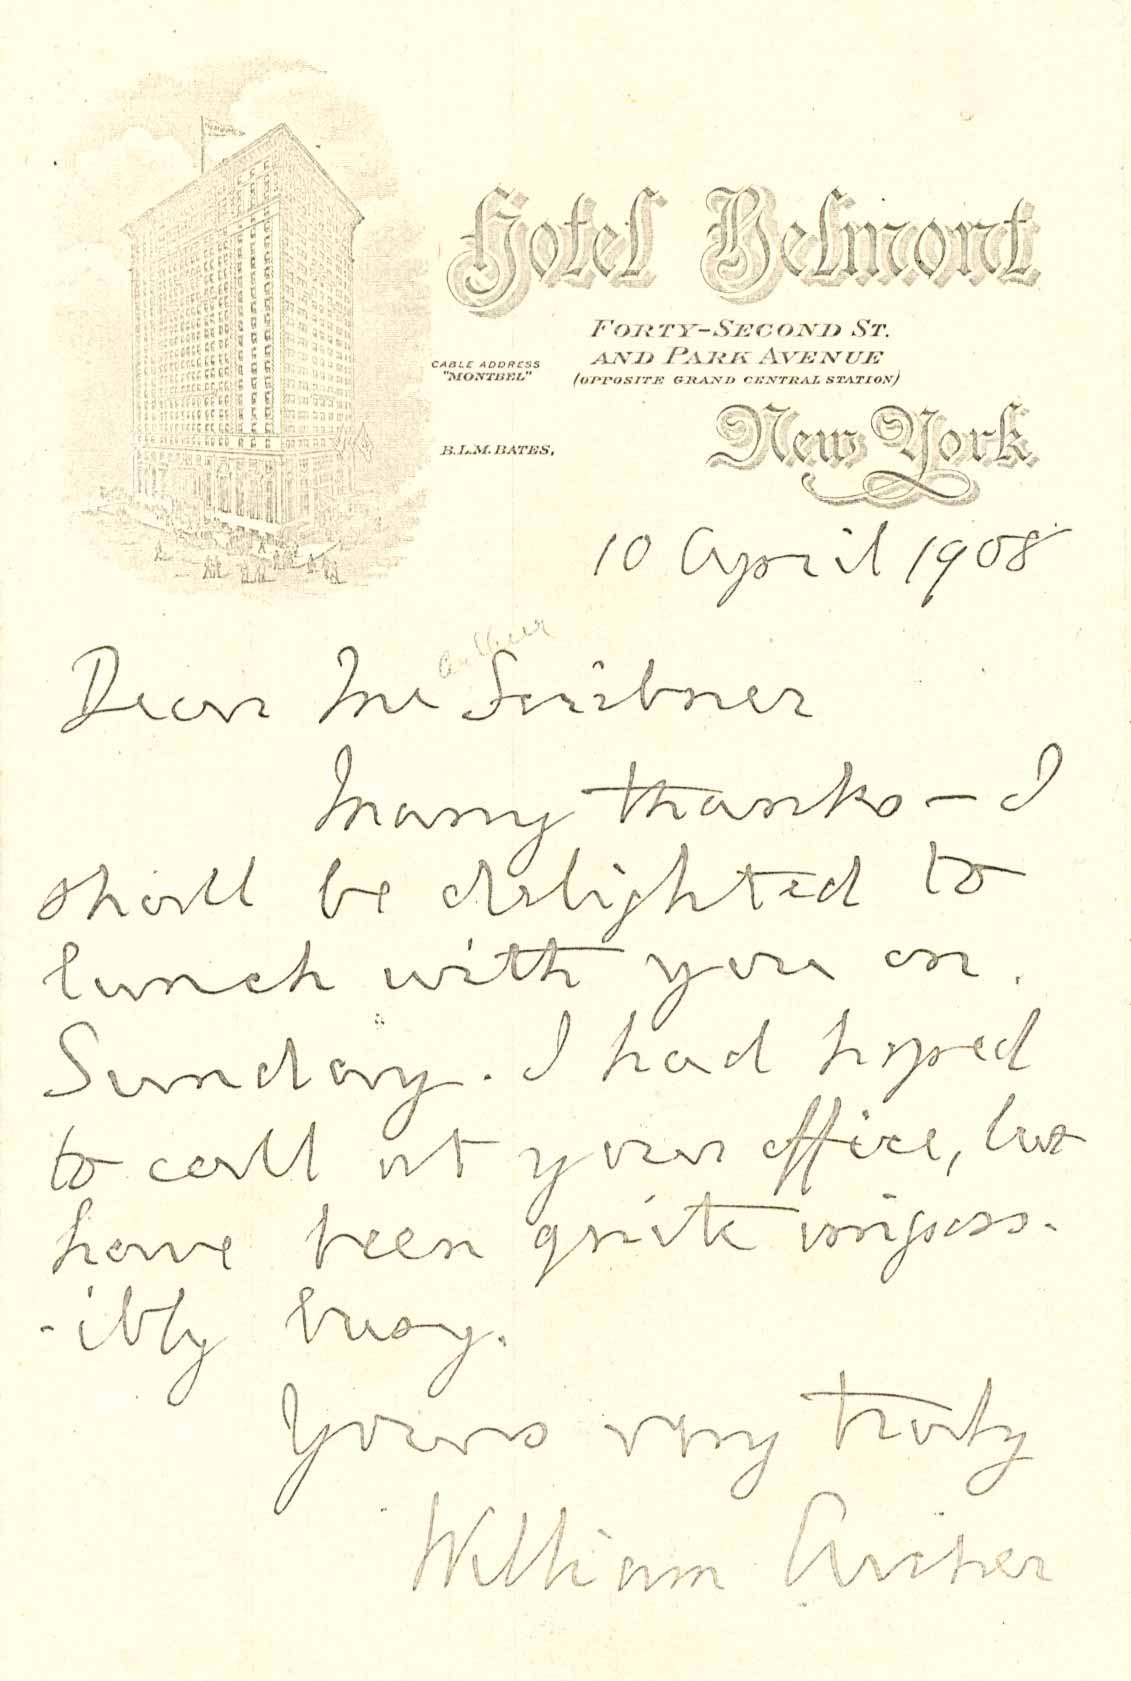 Hotel Belmont
FORTY-SECOND ST.
AND PARK AVENUE
(OPPOSITE GRAND CENTRAL STATION)
CABLE ADDRESS
"MONTBEL"
New York
B.L.M. BATES,
10 April 1908
Dear Mr Scribner
Many thanks – I
shall be delighted to
lunch with you on
Sunday. I had hoped
to call at your office, but
have been quite imposs-
-ibly busy.
Yours very truly
William Archer